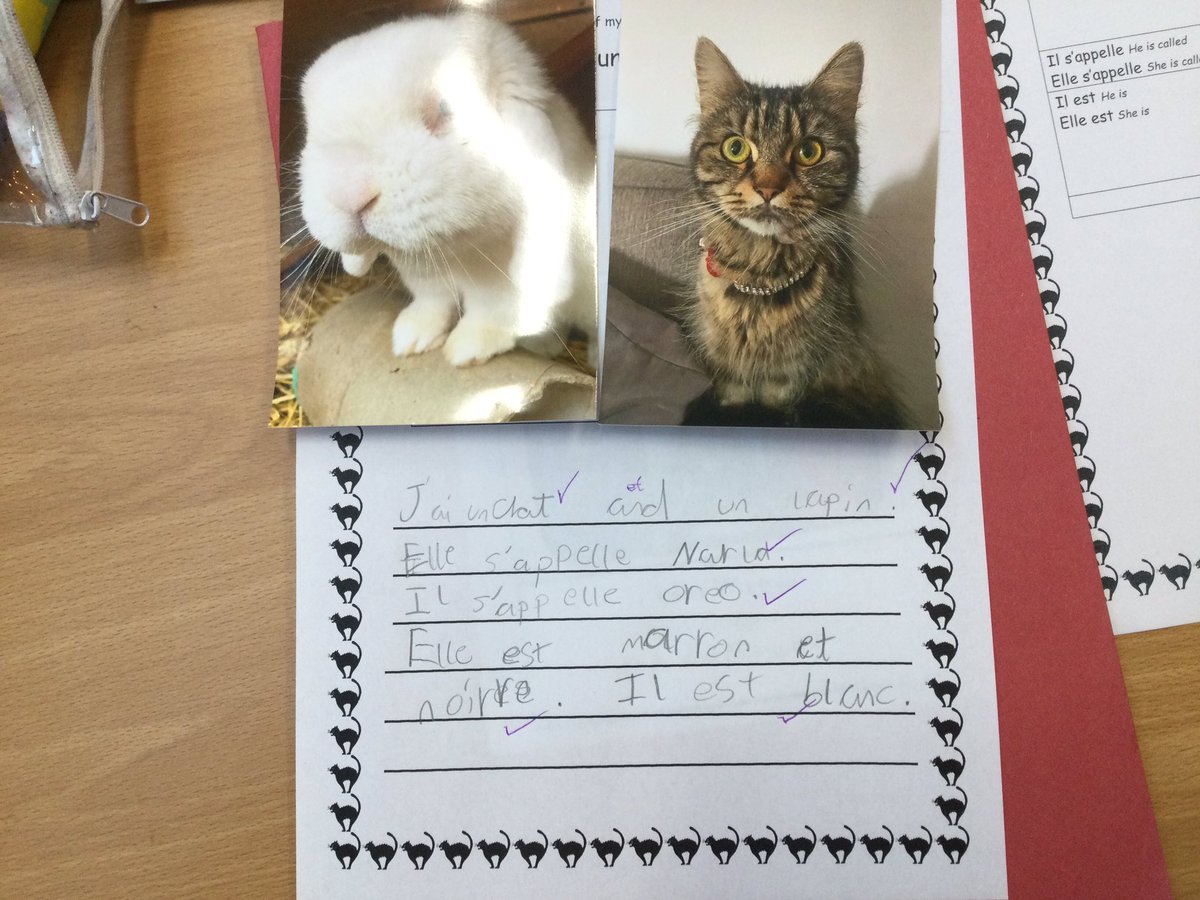 f my
un
Il s'appelle He is called
Elle s'appelle She is call
Il est He is
Elle est She is
J'ai un chat et and un lapin.
Elle s'appelle Narla.
Il s'appelle oreo.
Elle est marron et
noire. Il est blanc.